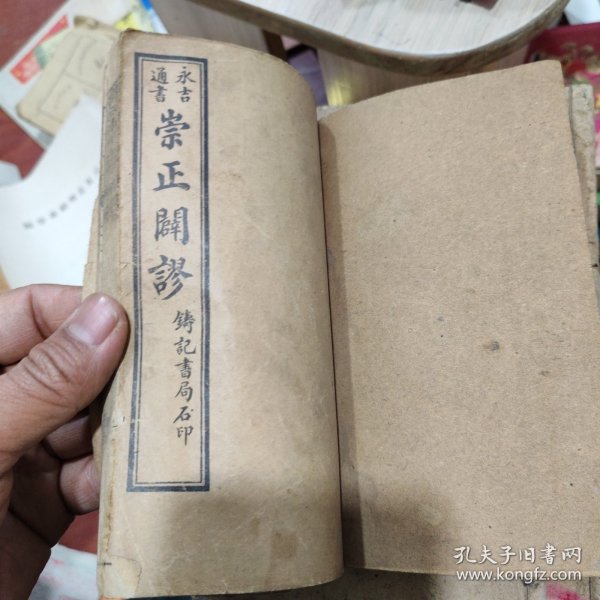 永吉
通書
崇正闢謬
鑄記書局石印
孔夫子旧書网
www.kongfz.com